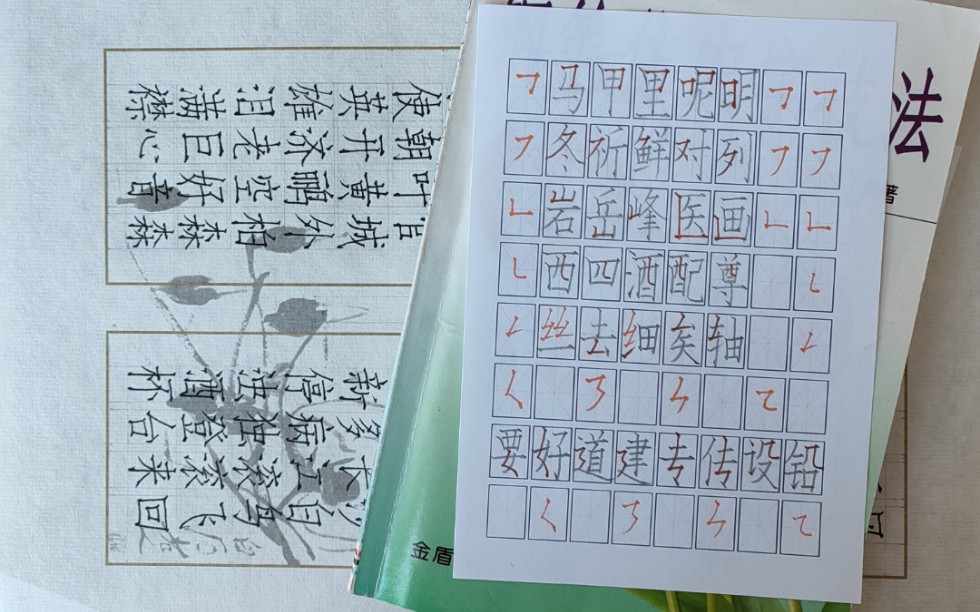 官城外柏森森
叶黄鹂空好音
朝开济老臣心
使英雄泪满襟
鸟飞回
江滚滚来
多病独登台
新停浊酒杯
法
著
金盾
㇕马甲里呢明㇕㇕
㇇冬祈鲜对列㇇㇇
㇗岩岳峰医画㇗㇗
㇄西四酒配尊㇄
㇜丝去细矣轴㇜
㇛㇋㇉㇈
要好道建专传设铅
㇛㇋㇉㇈